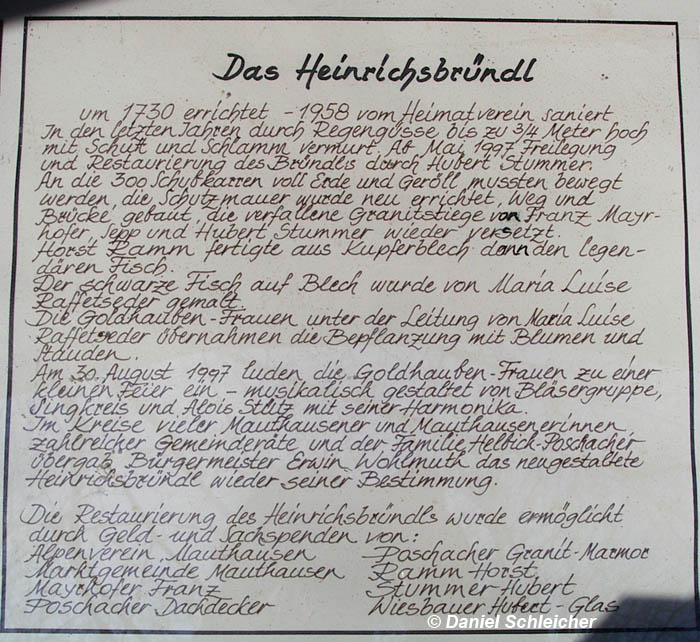 Das Heinrichsbründl
um 1730 errichtet - 1958 vom Heimatverein saniert
In den letzten Jahren durch Regengüsse bis zu 3/4 Meter hoch
mit Schutt und Schlamm vermurt. Ab Mai 1997 Freilegung
und Restaurierung des Bründls durch Hubert Stummer.
An die 300 Schubkarren voll Erde und Geröll mussten bewegt
werden, die Schutzmauer wurde neu errichtet, Weg und
Brücke gebaut, die verfallene Granitstiege von Franz Mayr-
hofer, Sepp und Hubert Stummer wieder versetzt.
Horst Ramm fertigte aus Kupferblech dann den legen-
dären Fisch.
Der schwarze Fisch auf Blech wurde von Maria Luise
Raffetseder gemalt.
Die Goldhauben-Frauen unter der Leitung von Maria Luise
Raffetseder übernahmen die Bepflanzung mit Blumen und
Stauden.
Am 30. August 1997 luden die Goldhauben-Frauen zu einer
kleinen Feier ein - musikalisch gestaltet von Bläsergruppe,
Singkreis und Alois Stütz mit seiner Harmonika.
Im Kreise vieler Mauthausener und Mauthausenerinnen
zahlreicher Gemeinderäte und der Familie Helbich-Poschacher
übergab Bürgermeister Erwin Wohlmuth das neugestaltete
Heinrichsbründl wieder seiner Bestimmung.
Die Restaurierung des Heinrichsbründls wurde ermöglicht
durch Geld- und Sachspenden von:
Alpenverein Mauthausen Poschacher Granit-Marmor
Marktgemeinde Mauthausen Ramm Horst
Mayrhofer Franz Stummer Hubert
Poschacher Dachdecker Wiesbauer Hubert - Glas
© Daniel Schleicher